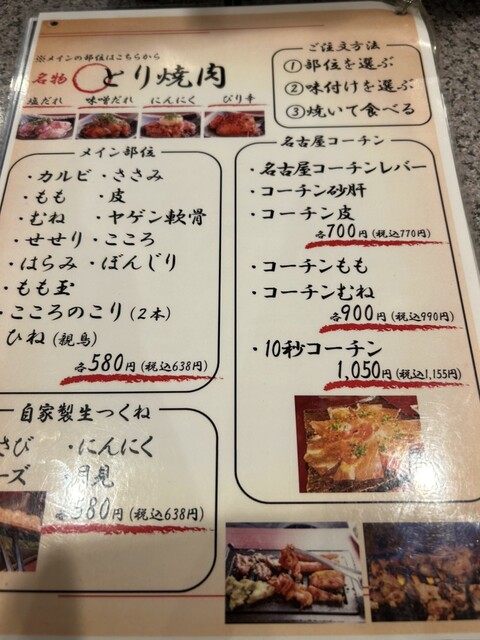 ※メインの部位はこちらから
名物 とり焼肉
塩だれ 味噌だれ にんにく ぴり辛
ご注文方法
①部位を選ぶ
②味付けを選ぶ
③焼いて食べる
メイン部位
・カルビ ・ささみ
・もも ・皮
・むね ・ヤゲン軟骨
・せせり ・こころ
・はらみ ・ぼんじり
・もも玉
・こころのこり(2本)
ひね(親鳥)
各580円(税込638円)
自家製生つくね
さび ・にんにく
ーズ ・月見
各580円(税込638円)
名古屋コーチン
・名古屋コーチンレバー
・コーチン砂肝
・コーチン皮
各700円(税込770円)
・コーチンもも
・コーチンむね
各900円(税込990円)
・10秒コーチン
1,050円(税込1,155円)